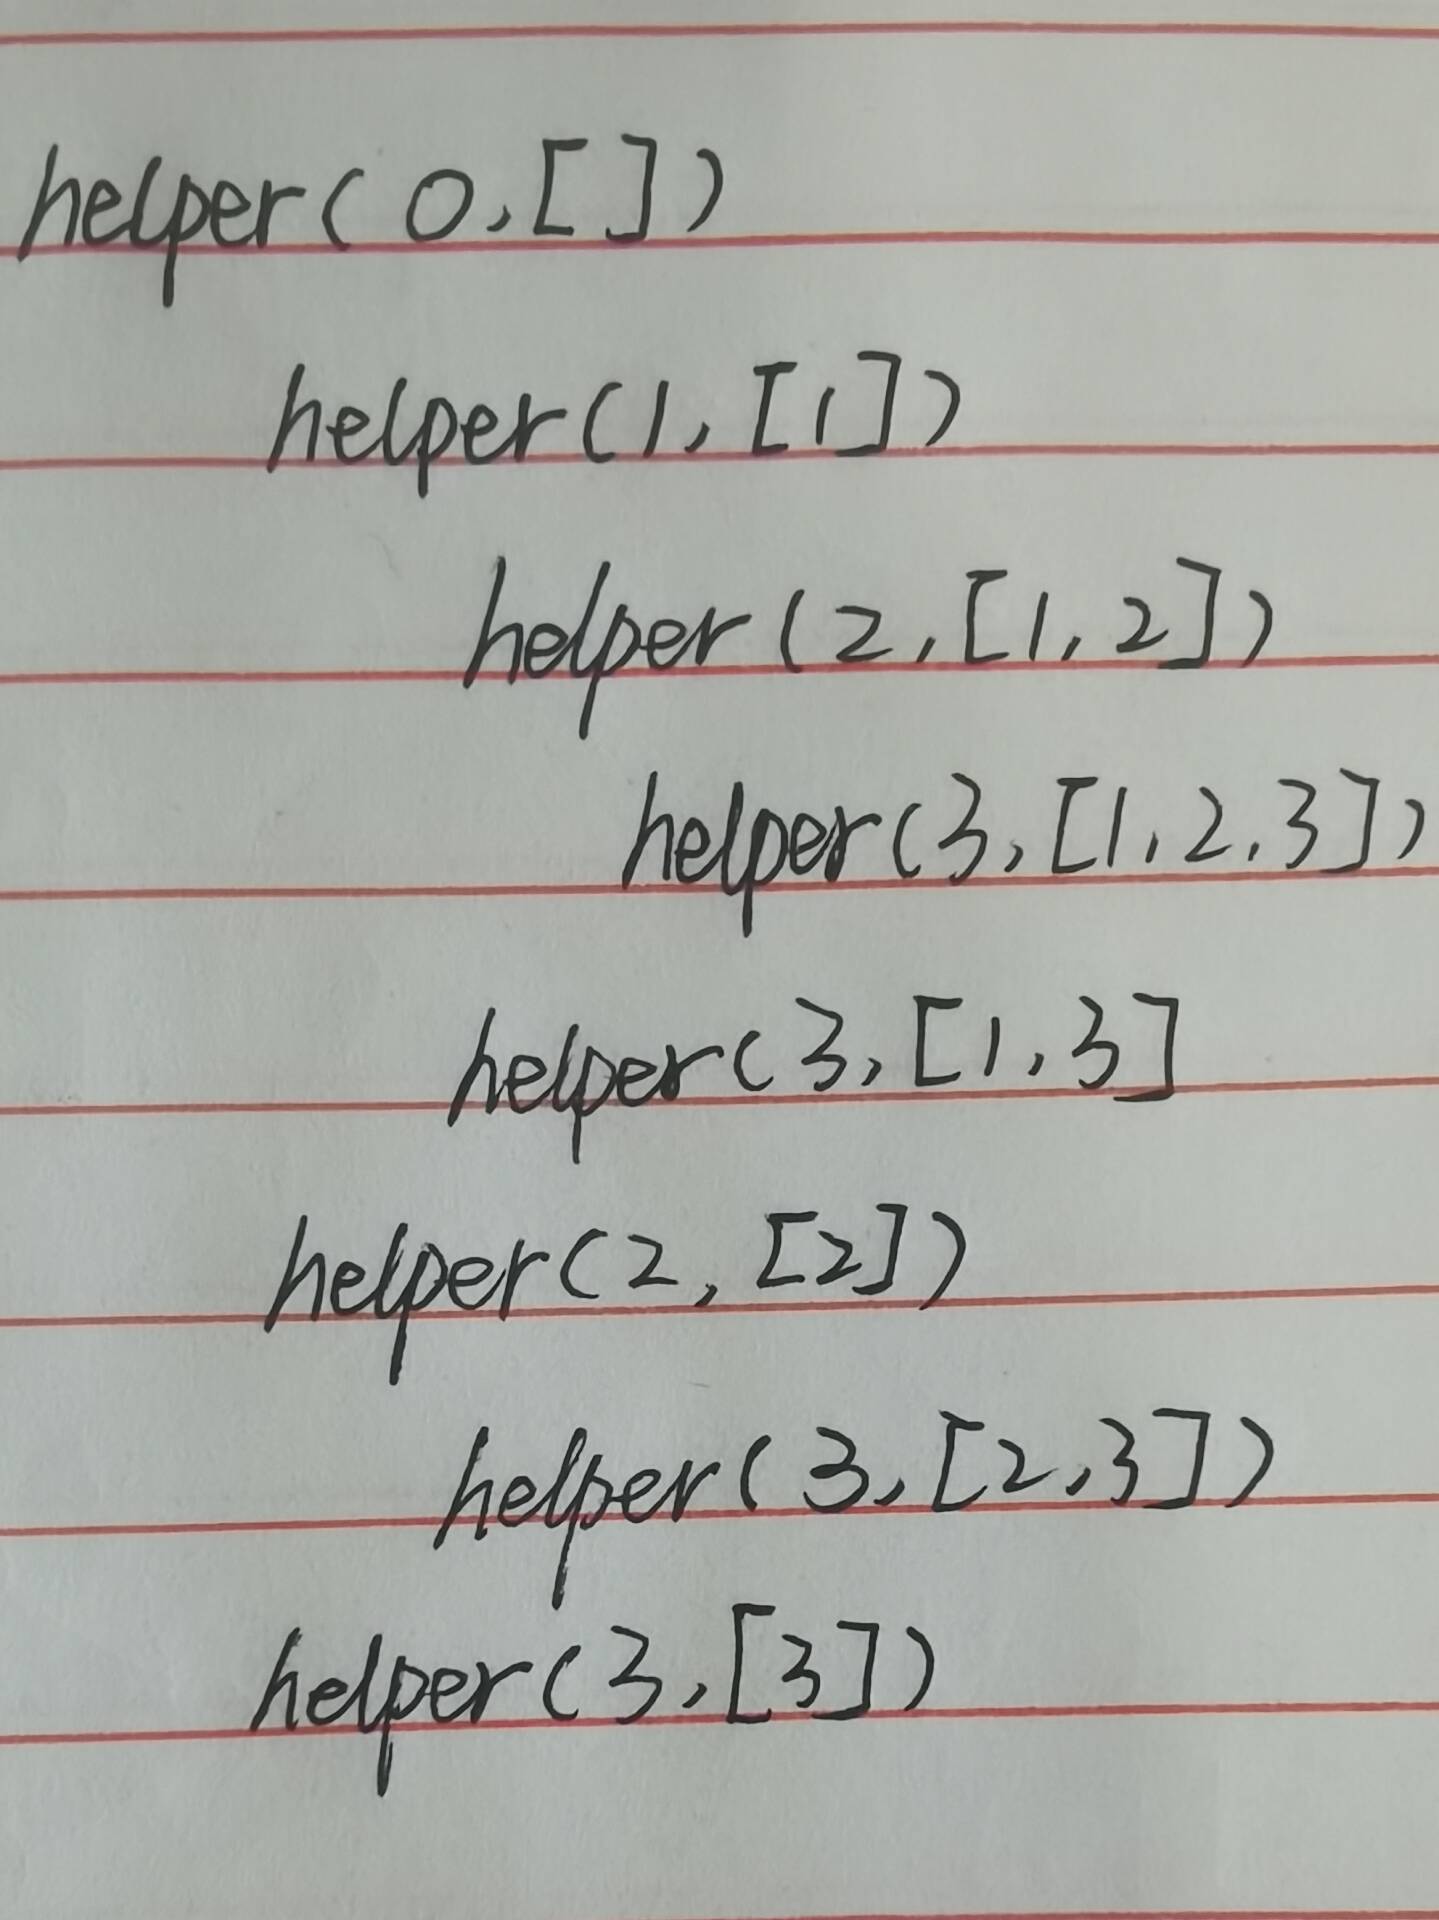 helper(0,[])
helper(1,[1])
helper(2,[1,2])
helper(3,[1,2,3])
helper(3,[1,3]
helper(2,[2])
helper(3,[2,3])
helper(3,[3])